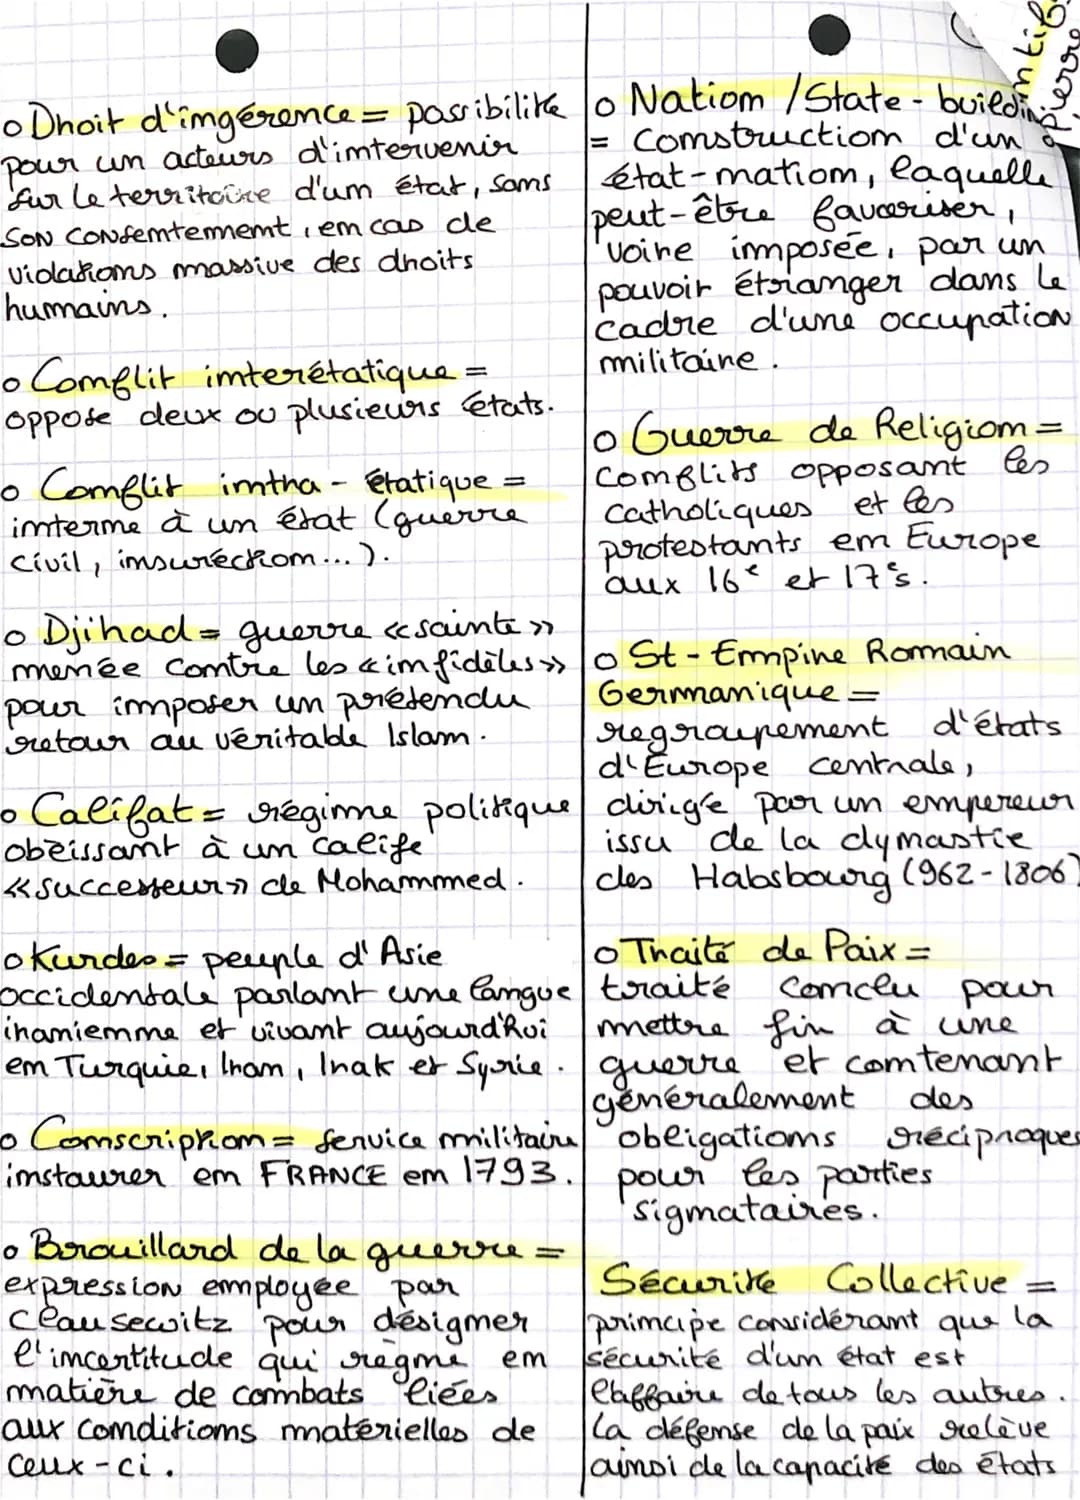 o Droit d'ingérence = possibilité
pour un acteurs d'intervenir
sur le territoire d'un état, sans
son consentement, en cas de
violations massive des droits
humains.
o Conflit interétatique =
oppose deux ou plusieurs états.
o Conflit intra-étatique =
interne à un état (guerre
civil, insurection...).
o Djihad = guerre «sainte»
menée contre les «infidèles»
pour imposer un prétendu
retour au véritable Islam.
o Califat = régime politique
obéissant à un calife
«successeur» de Mohammed.
o Kurdes = peuple d'Asie
occidentale parlant une langue
iranienne et vivant aujourd'hui
en Turquie, Iran, Irak et Syrie.
o Conscription = service militaire
instaurer en FRANCE en 1793.
o Brouillard de la guerre =
expression employée par
Clausewitz pour désigner
l'incertitude qui règne en
matière de combats liées
aux conditions matérielles de
ceux-ci.
o Nation / State-buildin
= construction d'un
état-nation, laquelle
peut-être favoriser,
voire imposée, par un
pouvoir étranger dans le
cadre d'une occupation
militaire.
o Guerre de Religion =
conflits opposant les
catholiques et les
protestants en Europe
aux 16e et 17e s.
o St-Empire Romain
Germanique =
regroupement d'états
d'Europe centrale,
dirigé par un empereur
issu de la dynastie
des Habsbourg (962-1806)
o Traité de Paix =
traité conclu pour
mettre fin à une
guerre et contenant
généralement des
obligations réciproques
pour les parties
signataires.
Sécurité Collective =
principe considérant que la
sécurité d'un état est
l'affaire de tous les autres.
La défense de la paix relève
ainsi de la capacité des états